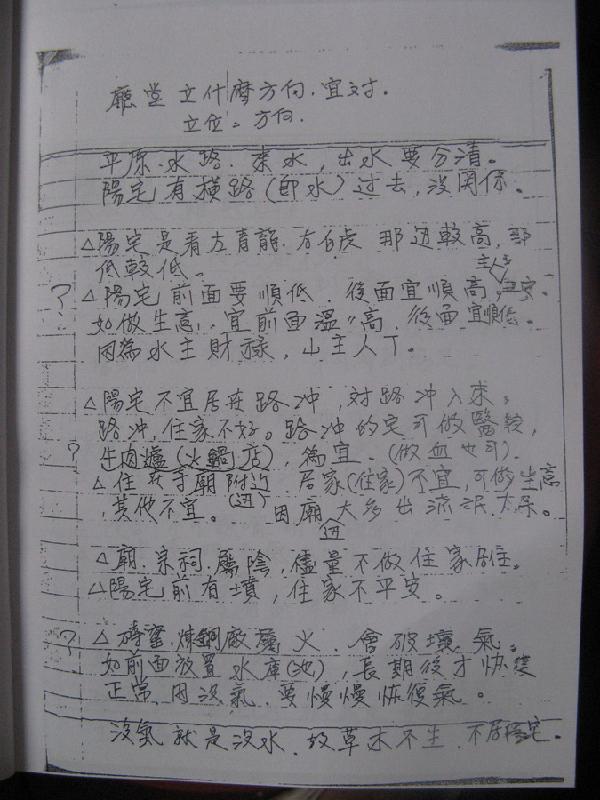 廳堂立什麼方向.宜対.
立位。方向.
平原.水路.來水,出水要分清。
陽宅有橫路(即水)过去,没関係。
△陽宅是看左青龍.右白虎 那边較高,那
低較低。
主人丁
? △陽宅前面要順低.後面宜順高,
如做生意,宜前面溫〃高,後面宜順低。
因為水主財祿,山主人丁。
△陽宅不宜居在路冲,対路冲入來。
路冲,住家不好。路冲的宅可做醫院,
? 牛肉爐(火鍋店),為宜.(做血也可).
△住在寺廟附近 居家(住家)不宜,可做生意
,其他不宜。(进) 因廟大多出流氓大杀。
进
△廟.宗祠.屬陰,儘量不做住家居住。
△陽宅前有墳,住家不平安。
? △磚窰 煉鋼廠屬火.會破壞氣。
如前面放置水庫(池),長期後才恢復
正常.因没氣.要慢慢恢復氣。
没氣就是没水.故草木不生.不居陽宅。